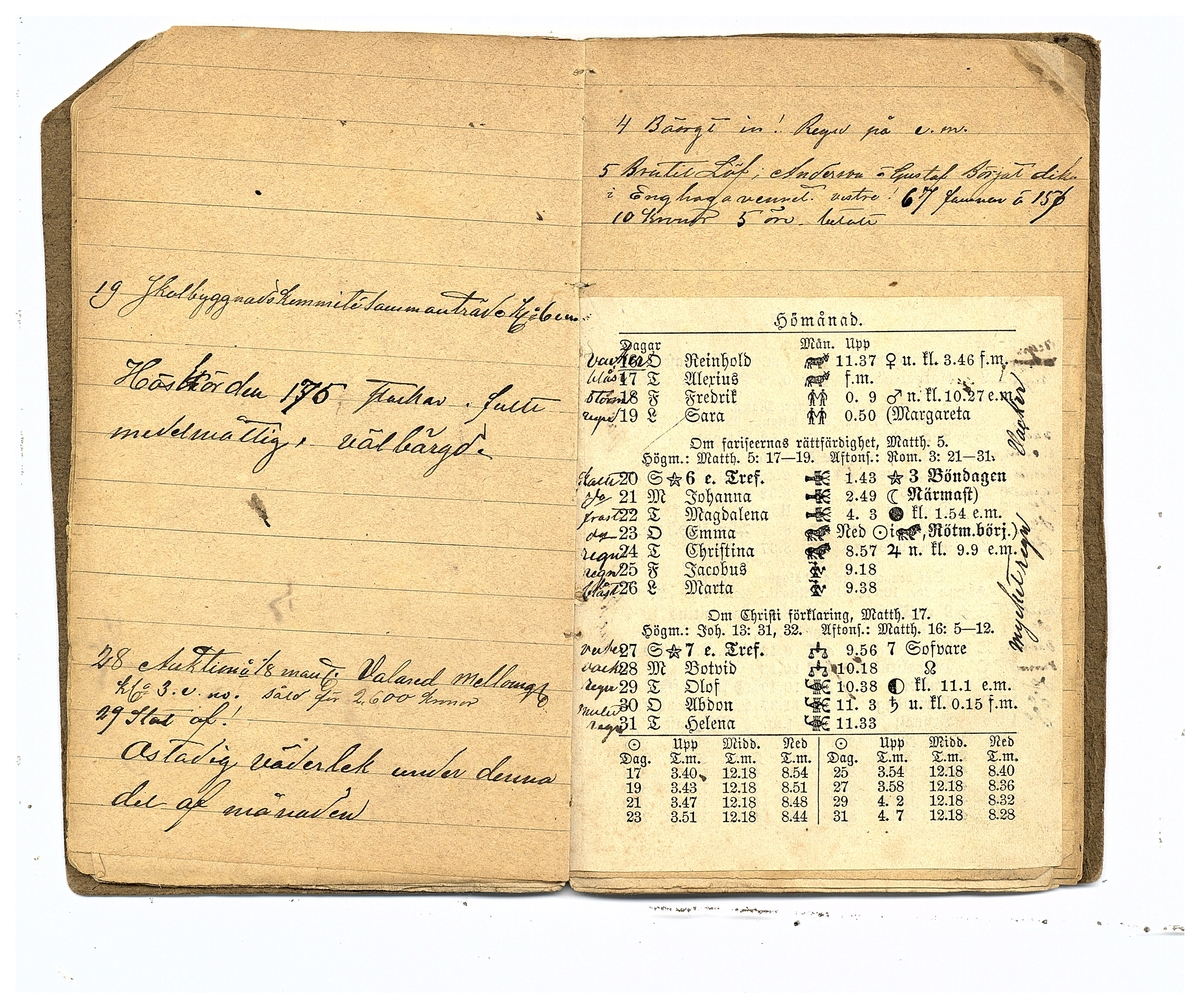 19 Skolbyggnadskommitésammanträde kl 6 e.m.
Höskörden 175 flockar.
medelmåttig, välbärgd.
28 Auktion å 1/8 mant. Valared Mellomg
kl 3. e. m. såld för 2,600 Kronor
29 Stod af!
Ostadig väderlek under denna
del af månaden
4 Bärgt in! Regn på e.m.
5 Löf, Anderson o Gustaf Börjat dik.
i Enghaga vestre! 67 famnar à 15
10 Kronor 5 öre betalt
Hömånad.
Dagar Mån. Upp
vackert 16 O Reinhold 11.37 ♀ u. kl. 3.46 f.m.
blåst 17 T Alexius f.m.
storm 18 F Fredrik 0. 9 ♂ n. kl. 10.27 e.m.
regn 19 L Sara 0.50 (Margareta
Om fariseernas rättfärdighet, Matth. 5.
Högm.: Matth. 5: 17—19. Aftons.: Rom. 3: 21—31.
20 S ☆ 6 e. Tref. 1.43 ☆ 3 Böndagen
21 M Johanna 2.49 ☾ Närmast)
frost 22 T Magdalena 4. 3 ● kl. 1.54 e.m.
23 O Emma Ned ☉ i ♌, Rötm. börj.)
regn 24 T Christina 8.57 ♃ n. kl. 9.9 e.m.
regn 25 F Jacobus 9.18
blåst 26 L Marta 9.38
Om Christi förklaring, Matth. 17.
Högm.: Joh. 13: 31, 32. Aftons.: Matth. 16: 5—12.
27 S ☆ 7 e. Tref. 9.56 7 Sofvare
28 M Botvid 10.18 ☊
regn 29 T Olof 10.38 ◐ kl. 11.1 e.m.
mulet 30 O Abdon 11. 3 ♄ u. kl. 0.15 f.m.
regn 31 T Helena 11.33
vacker
mycket regn
☉ Upp Midd. Ned ☉ Upp Midd. Ned
Dag. T.m. T.m. T.m. Dag. T.m. T.m. T.m.
17 3.40 12.18 8.54 25 3.54 12.18 8.40
19 3.43 12.18 8.51 27 3.58 12.18 8.36
21 3.47 12.18 8.48 29 4. 2 12.18 8.32
23 3.51 12.18 8.44 31 4. 7 12.18 8.28